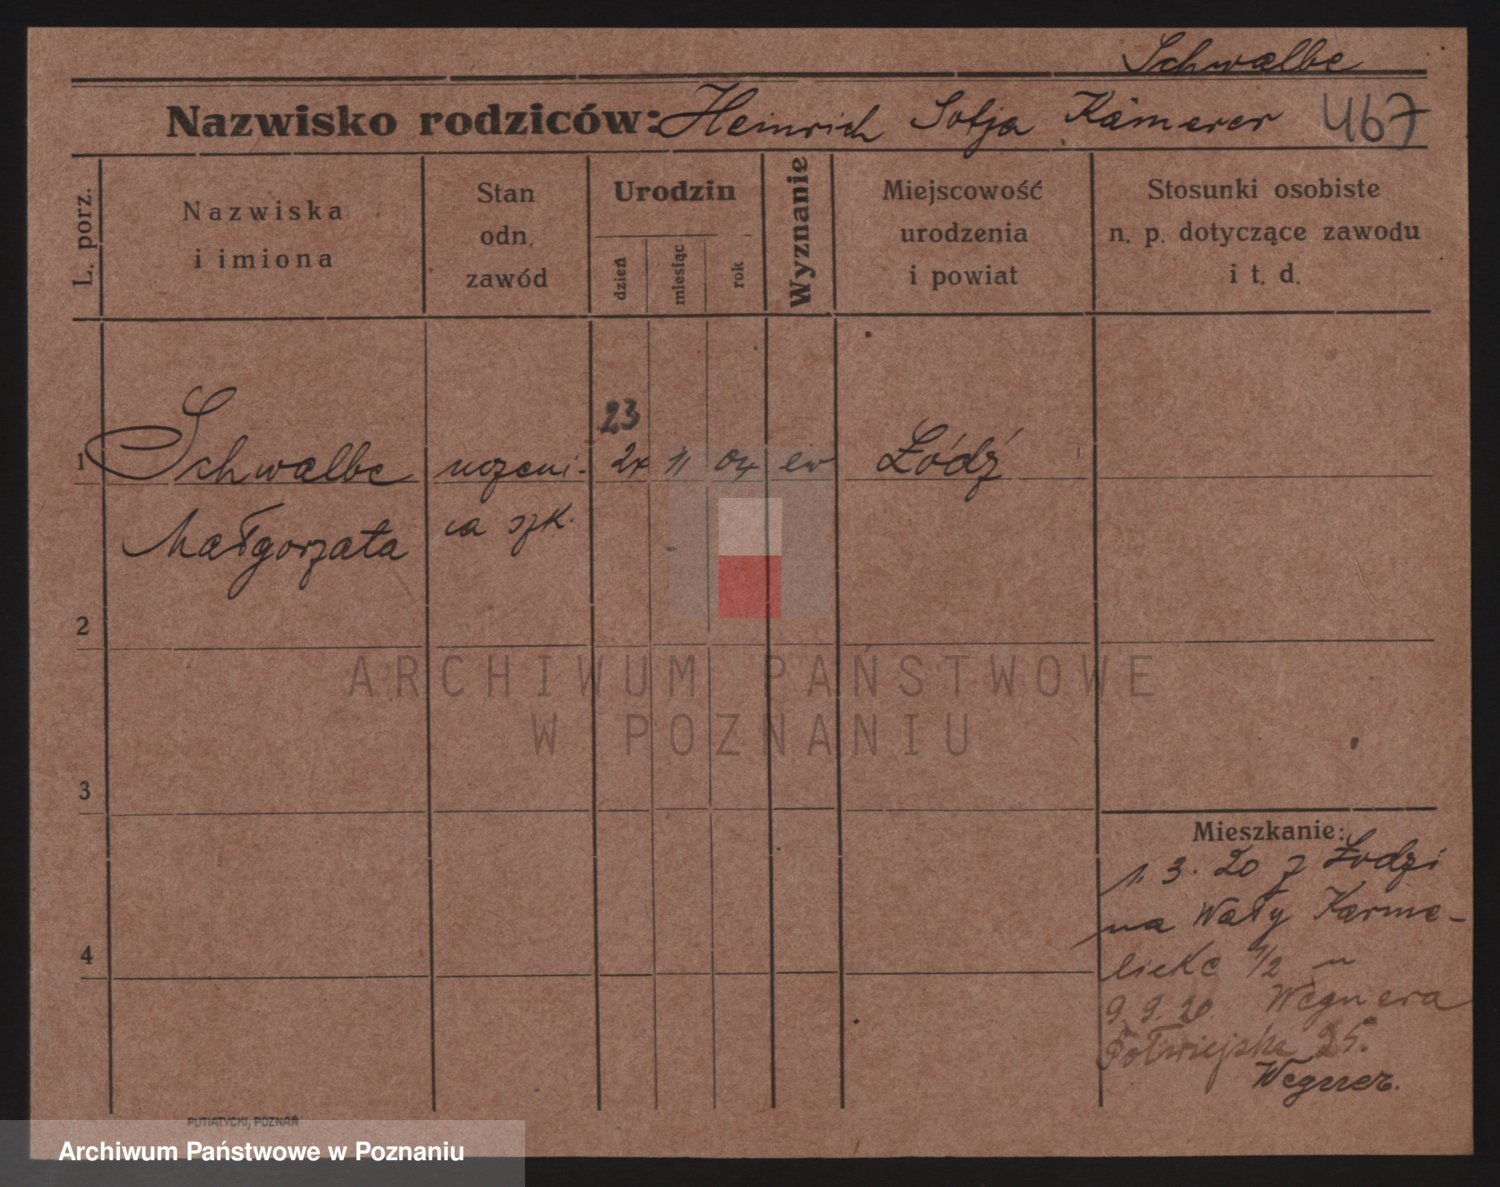 Schwalbe
Nazwisko rodziców: Heinrich Sofja Kämerer 467
L. porz.
Nazwiska i imiona
Stan odn. zawód
Urodzin
dzień
miesiąc
rok
Wyznanie
Miejscowość urodzenia i powiat
Stosunki osobiste n. p. dotyczące zawodu i t. d.
23
1 Schwalbe uczeni- 24 11 04 ew Łódź
Małgorzata ca szk.
2
3
4
Mieszkanie:
1. 3. 20 z Łodzi
na Wały Karme-
lickc 1/2 u
9. 9. 20 Wegnera
Półwiejska 25.
Wegner.
PUTIATYCKI, POZNAŃ
ARCHIWUM PAŃSTWOWE
W POZNANIU
Archiwum Państwowe w Poznaniu